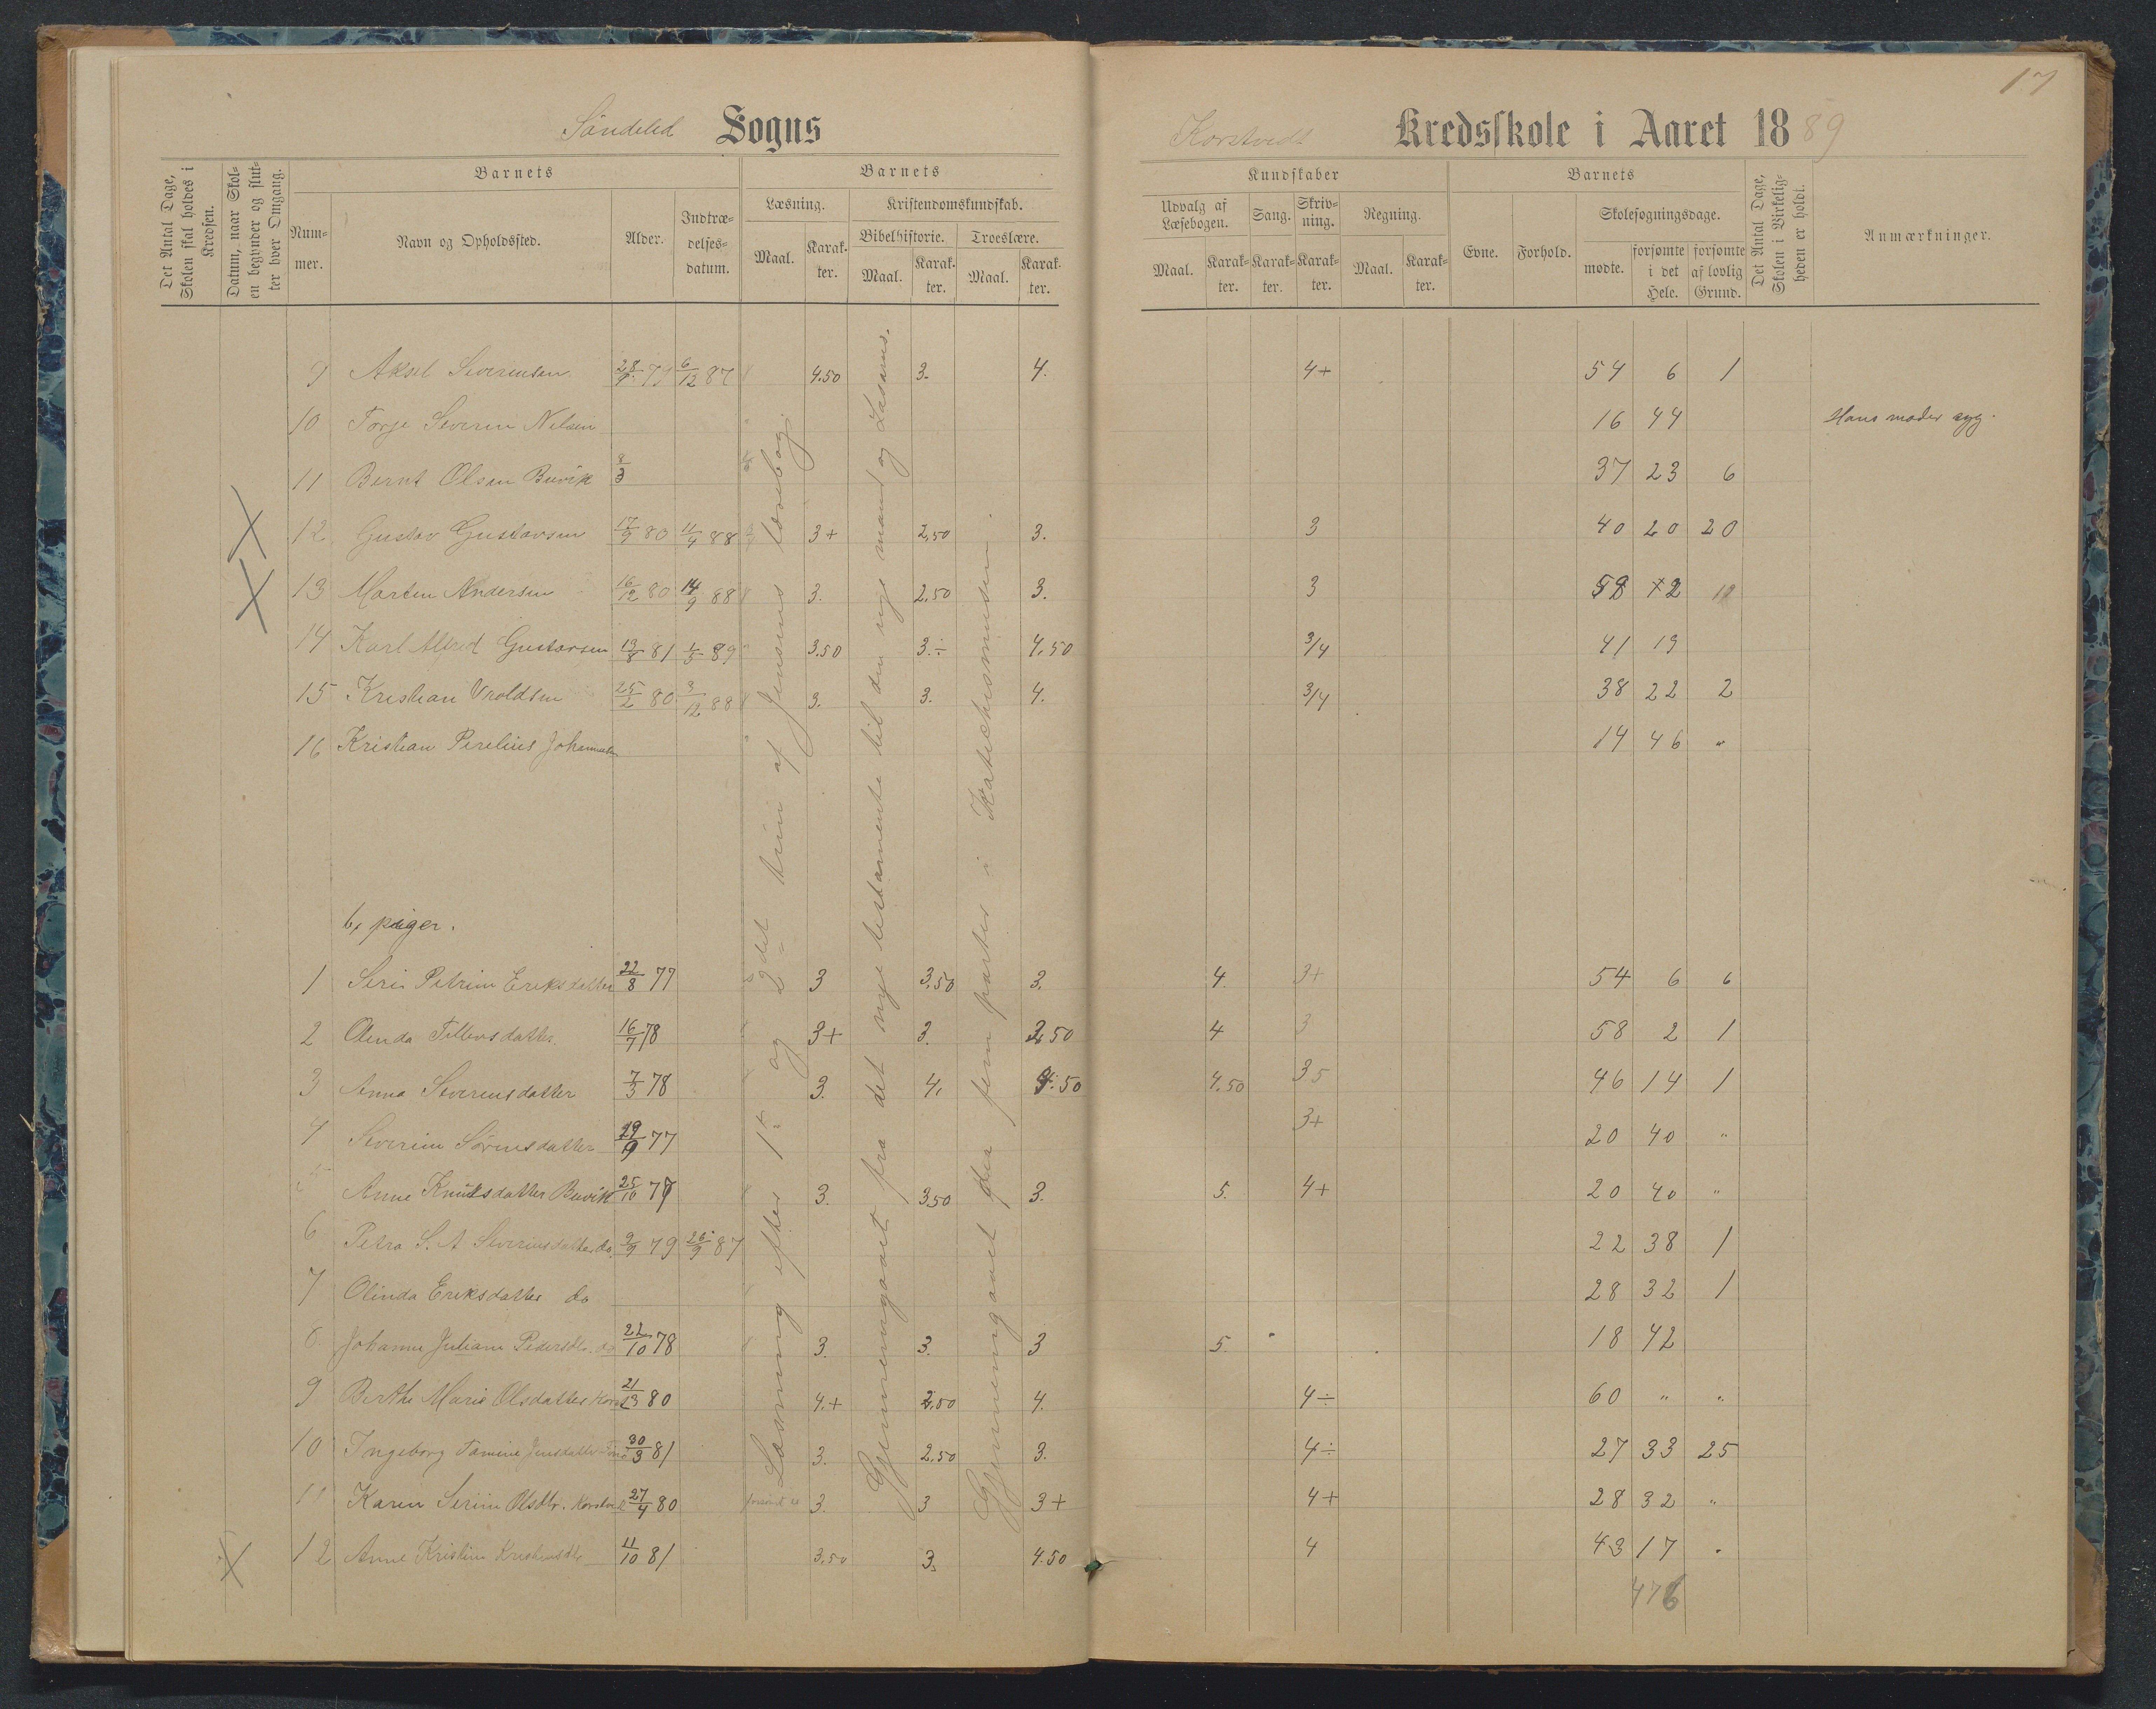 17
Søndeled Sogns
Korstvedt Kredsskole i Aaret 1889
Det Antal Dage, Skolen skal holdes i Kredsen.
Datum, naar Skolen begynder og slutter hver Omgang.
Barnets
Nummer.
Navn og Opholdssted.
Alder.
Indtrædelsesdatum.
Barnets
Læsning.
Maal.
Karakter.
Kristendomskundskab.
Bibelhistorie.
Maal.
Karakter.
Troeslære.
Maal.
Karakter.
Kundskaber
Udvalg af Læsebogen.
Maal.
Karakter.
Sang.
Karakter.
Skrivning.
Karakter.
Regning.
Maal.
Karakter.
Barnets
Evne.
Forhold.
Skolesøgningsdage.
mødte.
forsømte i det Hele.
forsømte af lovlig Grund.
Det Antal Dage, Skolen i Virkeligheden er holdt.
Anmærkninger.
9 Aksel Severinsen 28/9 79 6/12 87 4.50 3. 4. 4+ 54 6 1
10 Torje Severin Nilsen 16 44 Hans moder syg.
11 Bernt Olsen Buvik 37 23 6
12 Gustav Gustavsen 17/9 80 11/4 88 3+ 2,50 3. 3 40 20 20
13 Morten Andersen 16/12 80 14/9 88 3. 2,50 3. 3
14 Karl Alfred Gustavsen 19/8 81 1/5 89 3.50 3.÷ 4,50 3/4 41 19
15 Kristian Vroldsen 25/2 80 3/12 88 3. 3. 4. 3/4 38 22 2
16 Kristian Perelius Johannesen 14 46 "
b, piger.
1 Seri Petrine Eriksdatter 22/8 77 3 3,50 3. 4. 3+ 54 6 6
2 Olinda Tellevsdatter. 16/7 78 3+ 3. 3,50 4 3 58 2 1
3 Anna Severinsdatter 7/3 78 3. 4. 4.50 4,50 35 46 14 1
4 Severine Sørensdatter 29/9 77 3+ 20 40 "
5 Anne Knutsdatter Buvik 25/10 77 3. 3,50 3. 5. 4+ 20 40 "
6 Petra S. A. Severinsdatter do. 9/9 79 26/9 87 22 38 1
7 Olinda Eriksdatter do 28 32 1
8. Johanne Juliane Pedersdtr. do 22/10 78 3. 3. 3 5. 18 42
9 Berthe Marie Olsdatter 80 4.+ 2,50 4. 4÷ 60 " "
10 Ingeborg Tomine Jensdatter 30/3 81 3. 2,50 3. 4÷ 27 33 25
11 Karen Serine Olsdtr. Korstvedt 27/4 80 3. 3 3+ 4+ 28 32 "
12 Anne Kristine Kristensdtr 11/10 81 3,50 3. 4.50 4 43 17 "
476
Læsning efter 1ste og 2det trin af Jensens læsebog.
Gjennemgaaet fra det nye testamente til den rige mand og Lasarus.
Gjennemgaaet fem parter i Katechismusen.